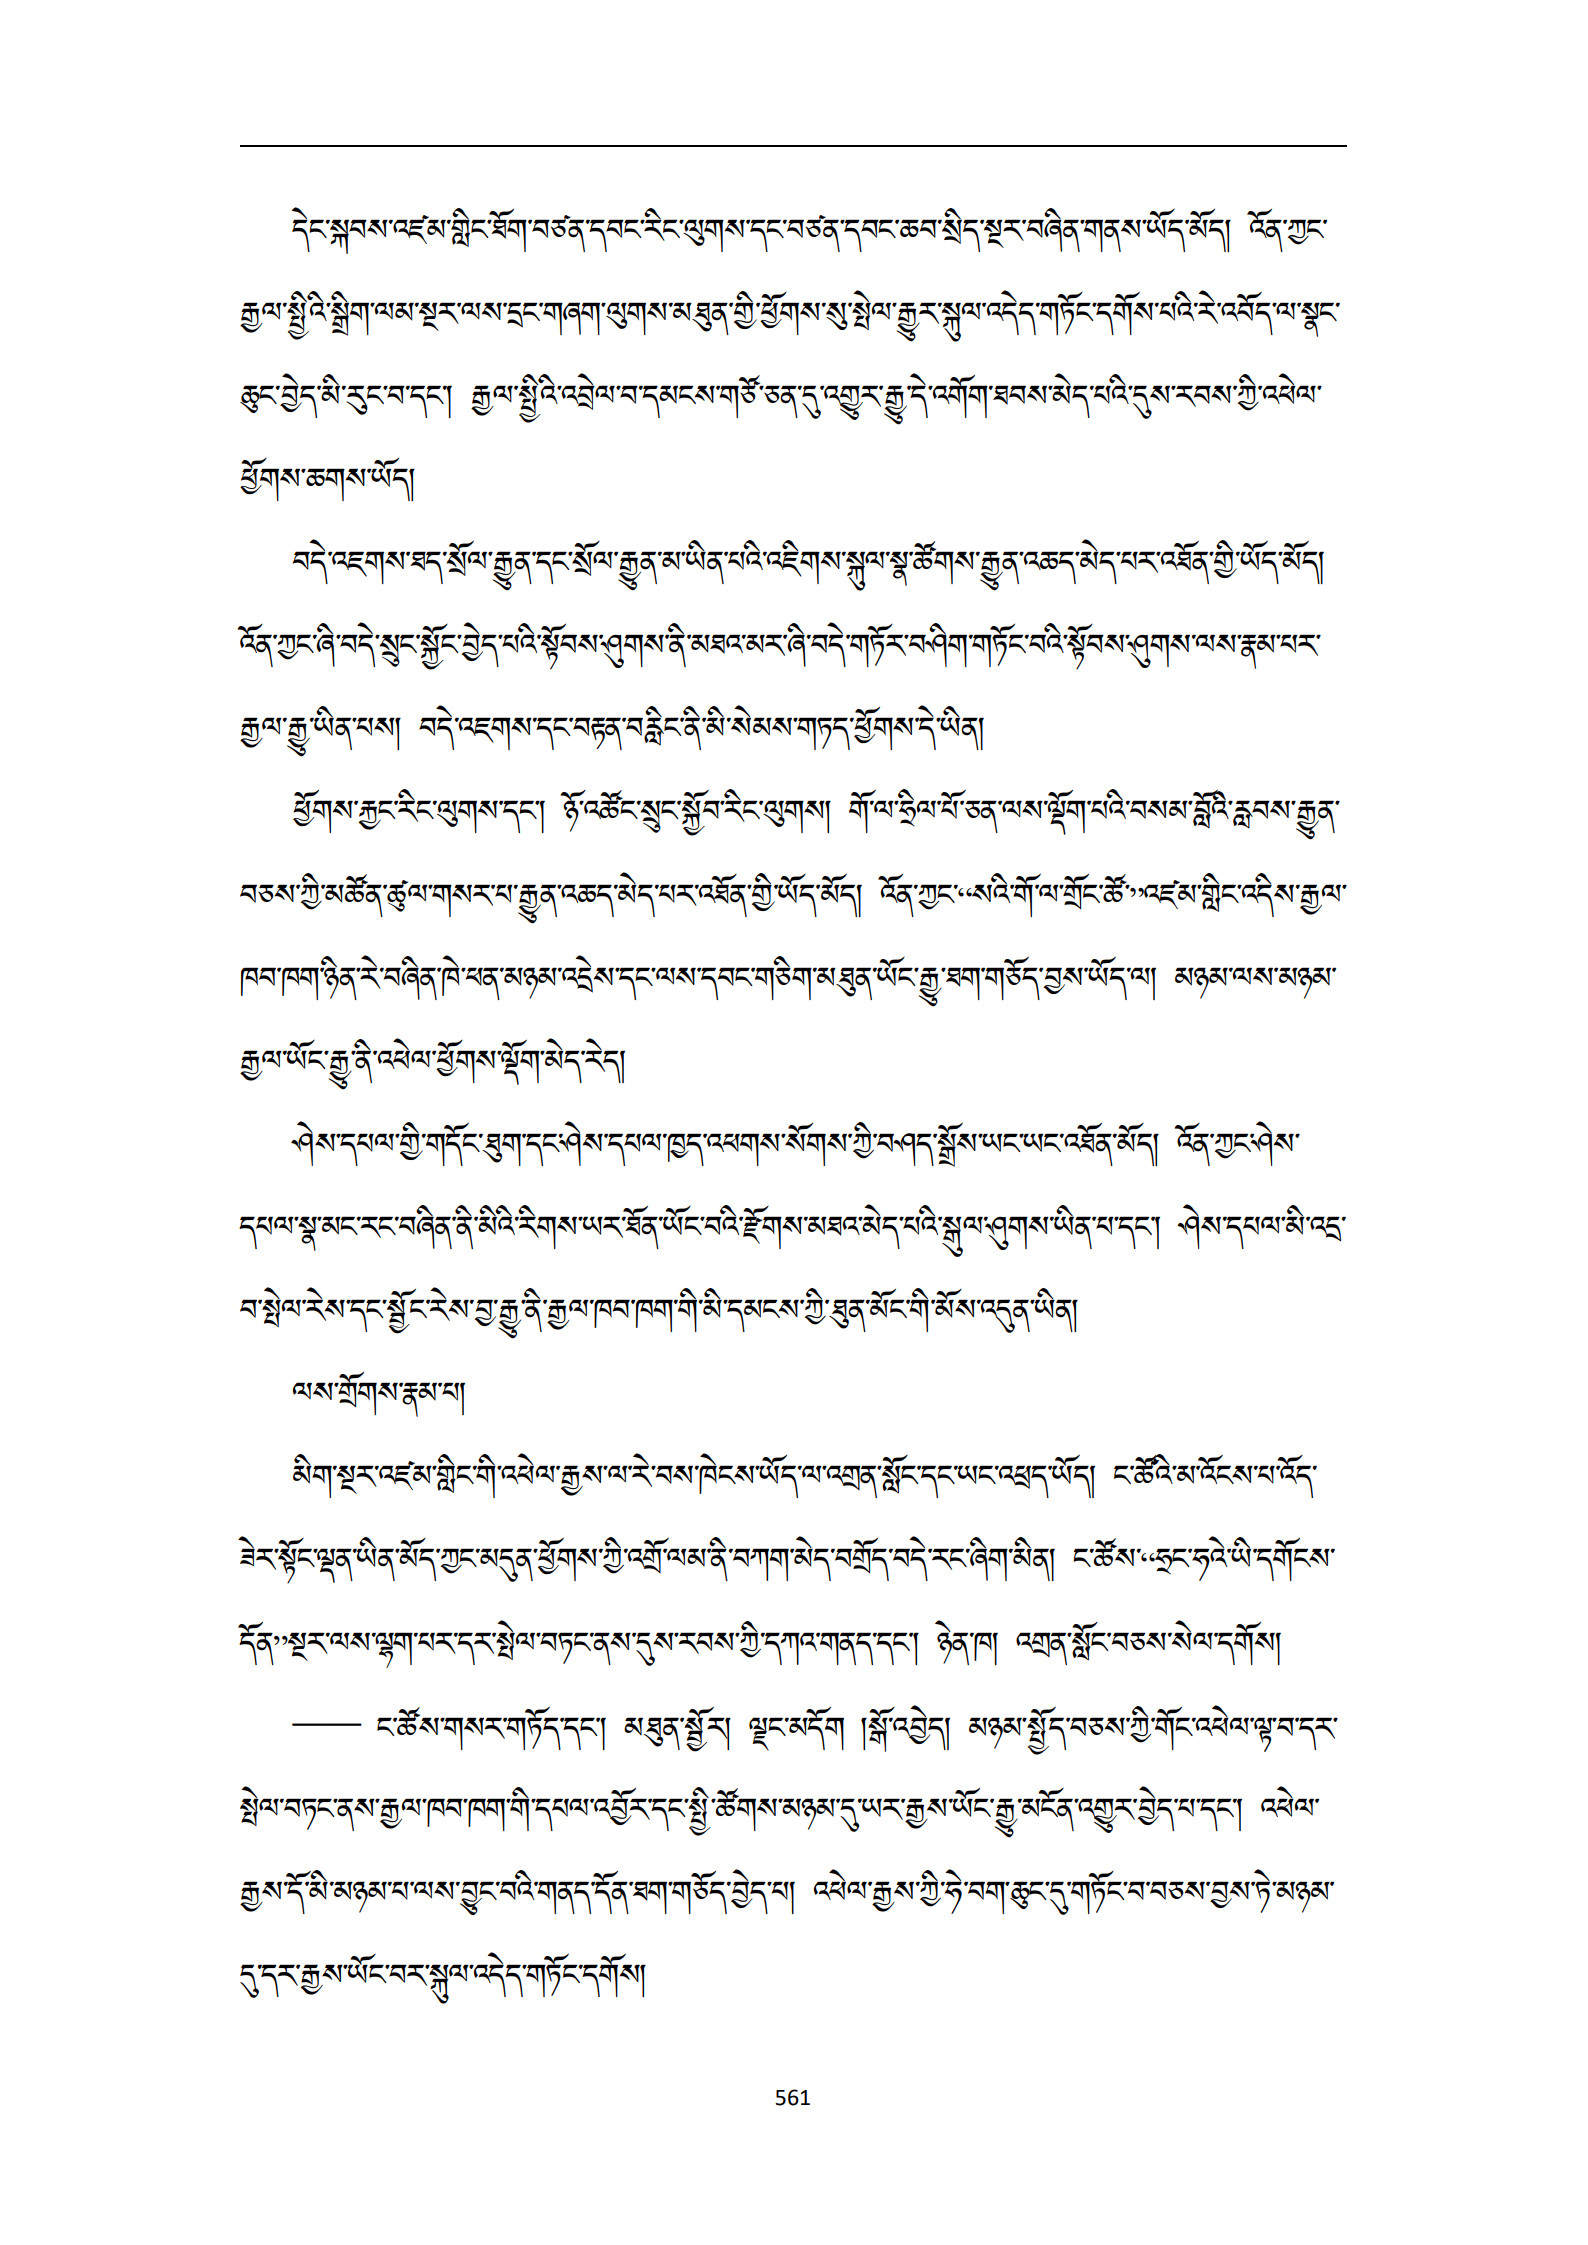 དེང་སྐབས་འཛམ་གླིང་ཐོག་བཙན་དབང་རིང་ལུགས་དང་བཙན་དབང་ཆབ་སྲིད་སྔར་བཞིན་གནས་ཡོད་མོད། འོན་ཀྱང་
རྒྱལ་སྤྱིའི་སྒྲིག་ལམ་སྔར་ལས་དྲང་གཞག་ལུགས་མཐུན་གྱི་ཕྱོགས་སུ་སྤེལ་རྒྱུར་སྐུལ་འདེད་གཏོང་དགོས་པའི་རེ་འབོད་ལ་སྣང་
ཆུང་བྱེད་མི་རུང་བ་དང་། རྒྱལ་སྤྱིའི་འབྲེལ་བ་དམངས་གཙོ་ཅན་དུ་འགྱུར་རྒྱུ་དེ་འགོག་ཐབས་མེད་པའི་དུས་རབས་ཀྱི་འཕེལ་
ཕྱོགས་ཆགས་ཡོད།
བདེ་འཇགས་ཐད་སྲོལ་རྒྱུན་དང་སྲོལ་རྒྱུན་མ་ཡིན་པའི་འཇིགས་སྐུལ་སྣ་ཚོགས་རྒྱུན་འཆད་མེད་པར་འཐོན་གྱི་ཡོད་མོད།
འོན་ཀྱང་ཞི་བདེ་སྲུང་སྐྱོང་བྱེད་པའི་སྟོབས་ཤུགས་ནི་མཐའ་མར་ཞི་བདེ་གཏོར་བཤིག་གཏོང་བའི་སྟོབས་ཤུགས་ལས་རྣམ་པར་
རྒྱལ་རྒྱུ་ཡིན་པས། བདེ་འཇགས་དང་བརྟན་བརླིང་ནི་མི་སེམས་གཏད་ཕྱོགས་དེ་ཡིན།
ཕྱོགས་རྐྱང་རིང་ལུགས་དང་། ཉོ་འཚོང་སྲུང་སྐྱོབ་རིང་ལུགས། གོ་ལ་ཧྲིལ་པོ་ཅན་ལས་ལྡོག་པའི་བསམ་བློའི་རླབས་རྒྱུན་
བཅས་ཀྱི་མཚོན་ཚུལ་གསར་པ་རྒྱུན་འཆད་མེད་པར་འཐོན་གྱི་ཡོད་མོད། འོན་ཀྱང་“སའི་གོ་ལ་གྲོང་ཚོ་”འཛམ་གླིང་འདིས་རྒྱལ་
ཁབ་ཁག་ཉིན་རེ་བཞིན་ཁེ་ཕན་མཉམ་འདྲེས་དང་ལས་དབང་གཅིག་མཐུན་ཡོང་རྒྱུ་ཐག་གཅོད་བྱས་ཡོད་ལ། མཉམ་ལས་མཉམ་
རྒྱལ་ཡོང་རྒྱུ་ནི་འཕེལ་ཕྱོགས་ལྡོག་མེད་རེད།
ཤེས་དཔལ་གྱི་གདོང་ཐུག་དང་ཤེས་དཔལ་ཁྱད་འཕགས་སོགས་ཀྱི་བཤད་སྒྲོས་ཡང་ཡང་འཐོན་མོད། འོན་ཀྱང་ཤེས་
དཔལ་སྣ་མང་རང་བཞིན་ནི་མིའི་རིགས་ཡར་ཐོན་ཡོང་བའི་རྫོགས་མཐའ་མེད་པའི་སྒུལ་ཤུགས་ཡིན་པ་དང་། ཤེས་དཔལ་མི་འདྲ་
བ་སྤེལ་རེས་དང་སྦྱོང་རེས་བྱ་རྒྱུ་ནི་རྒྱལ་ཁབ་ཁག་གི་མི་དམངས་ཀྱི་ཐུན་མོང་གི་མོས་འདུན་ཡིན།
ལས་གྲོགས་རྣམ་པ།
མིག་སྔར་འཛམ་གླིང་གི་འཕེལ་རྒྱས་ལ་རེ་བས་ཁེངས་ཡོད་ལ་འགྲན་སློང་དང་ཡང་འཕྲད་ཡོད། ང་ཚོའི་མ་འོངས་པ་འོད་
ཟེར་སྟོང་ལྡན་ཡིན་མོད་ཀྱང་མདུན་ཕྱོགས་ཀྱི་འགྲོ་ལམ་ནི་བཀག་མེད་བགྲོད་བདེ་རང་ཞིག་མིན། ང་ཚོས་“ཧྲང་ཧའེ་ཡི་དགོངས་
དོན་”སྔར་ལས་ལྷག་པར་དར་སྤེལ་བཏང་ནས་དུས་རབས་ཀྱི་དཀའ་གནད་དང་། ཉེན་ཁ། འགྲན་སློང་བཅས་སེལ་དགོས།
—— ང་ཚོས་གསར་གཏོད་དང་། མཐུན་སྦྱོར། ལྗང་མདོག །སྒོ་འབྱེད། མཉམ་སྤྱོད་བཅས་ཀྱི་གོང་འཕེལ་ལྟ་བ་དར་
སྤེལ་བཏང་ནས་རྒྱལ་ཁབ་ཁག་གི་དཔལ་འབྱོར་དང་སྤྱི་ཚོགས་མཉམ་དུ་ཡར་རྒྱས་ཡོང་རྒྱུ་མངོན་འགྱུར་བྱེད་པ་དང་། འཕེལ་
རྒྱས་དོ་མི་མཉམ་པ་ལས་བྱུང་བའི་གནད་དོན་ཐག་གཅོད་བྱེད་པ། འཕེལ་རྒྱས་ཀྱི་ཧེ་བག་ཆུང་དུ་གཏོང་བ་བཅས་བྱས་ཏེ་མཉམ་
དུ་དར་རྒྱས་ཡོང་བར་སྐུལ་འདེད་གཏོང་དགོས།
561